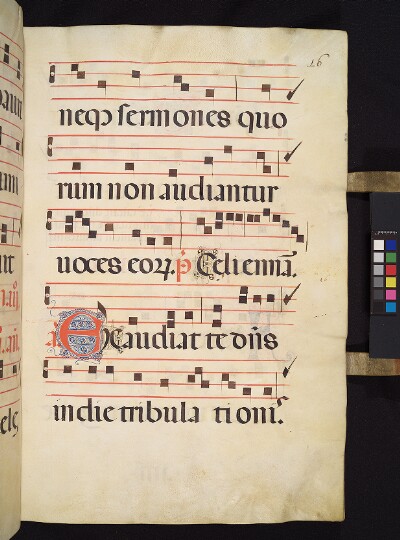 16
neqꝫ sermones quo
rum non audiantur
uoces eoꝝ. p̄. Celi enna᷑.
Exaudiat te dn̄s
in die tribula tionis